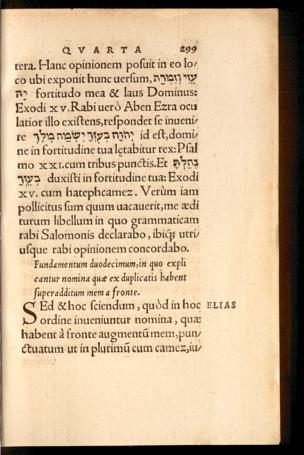 QVARTA 299
tera. Hanc opinionem posuit in eo lo/
co ubi exponit hunc uersum, עָזִּי וְזִמְרָת
יָהּ fortitudo mea & laus Dominus:
Exodi xv. Rabi uerò Aben Ezra ocu
latior illo existens, respondet se inueni/
re יְהֹוָה בְּעָזְּךָ יִשְׂמַח מֶלֶךְ id est, domi/
ne in fortitudine tua lętabitur rex: Psal
mo xxi. cum tribus punctis. Et נֵהַלְתָּ
בְעָזְּךָ duxisti in fortitudine tua: Exodi
xv. cum hatephcamez. Verùm iam
pollicitus sum quum uacauerit, me ædi
turum libellum in quo grammaticam
rabi Salomonis declarabo, ibiq́; utri/
usque rabi opinionem concordabo.
Fundamentum duodecimum, in quo expli
cantur nomina quæ ex duplicatis habent
superadditum mem a fronte.
SEd & hoc sciendum, quòd in hoc ELIAS
ordine inueniuntur nomina, quæ
habent à fronte augmentũ mem, pun/
ctuatum ut in plurimũ cum camez, iu/